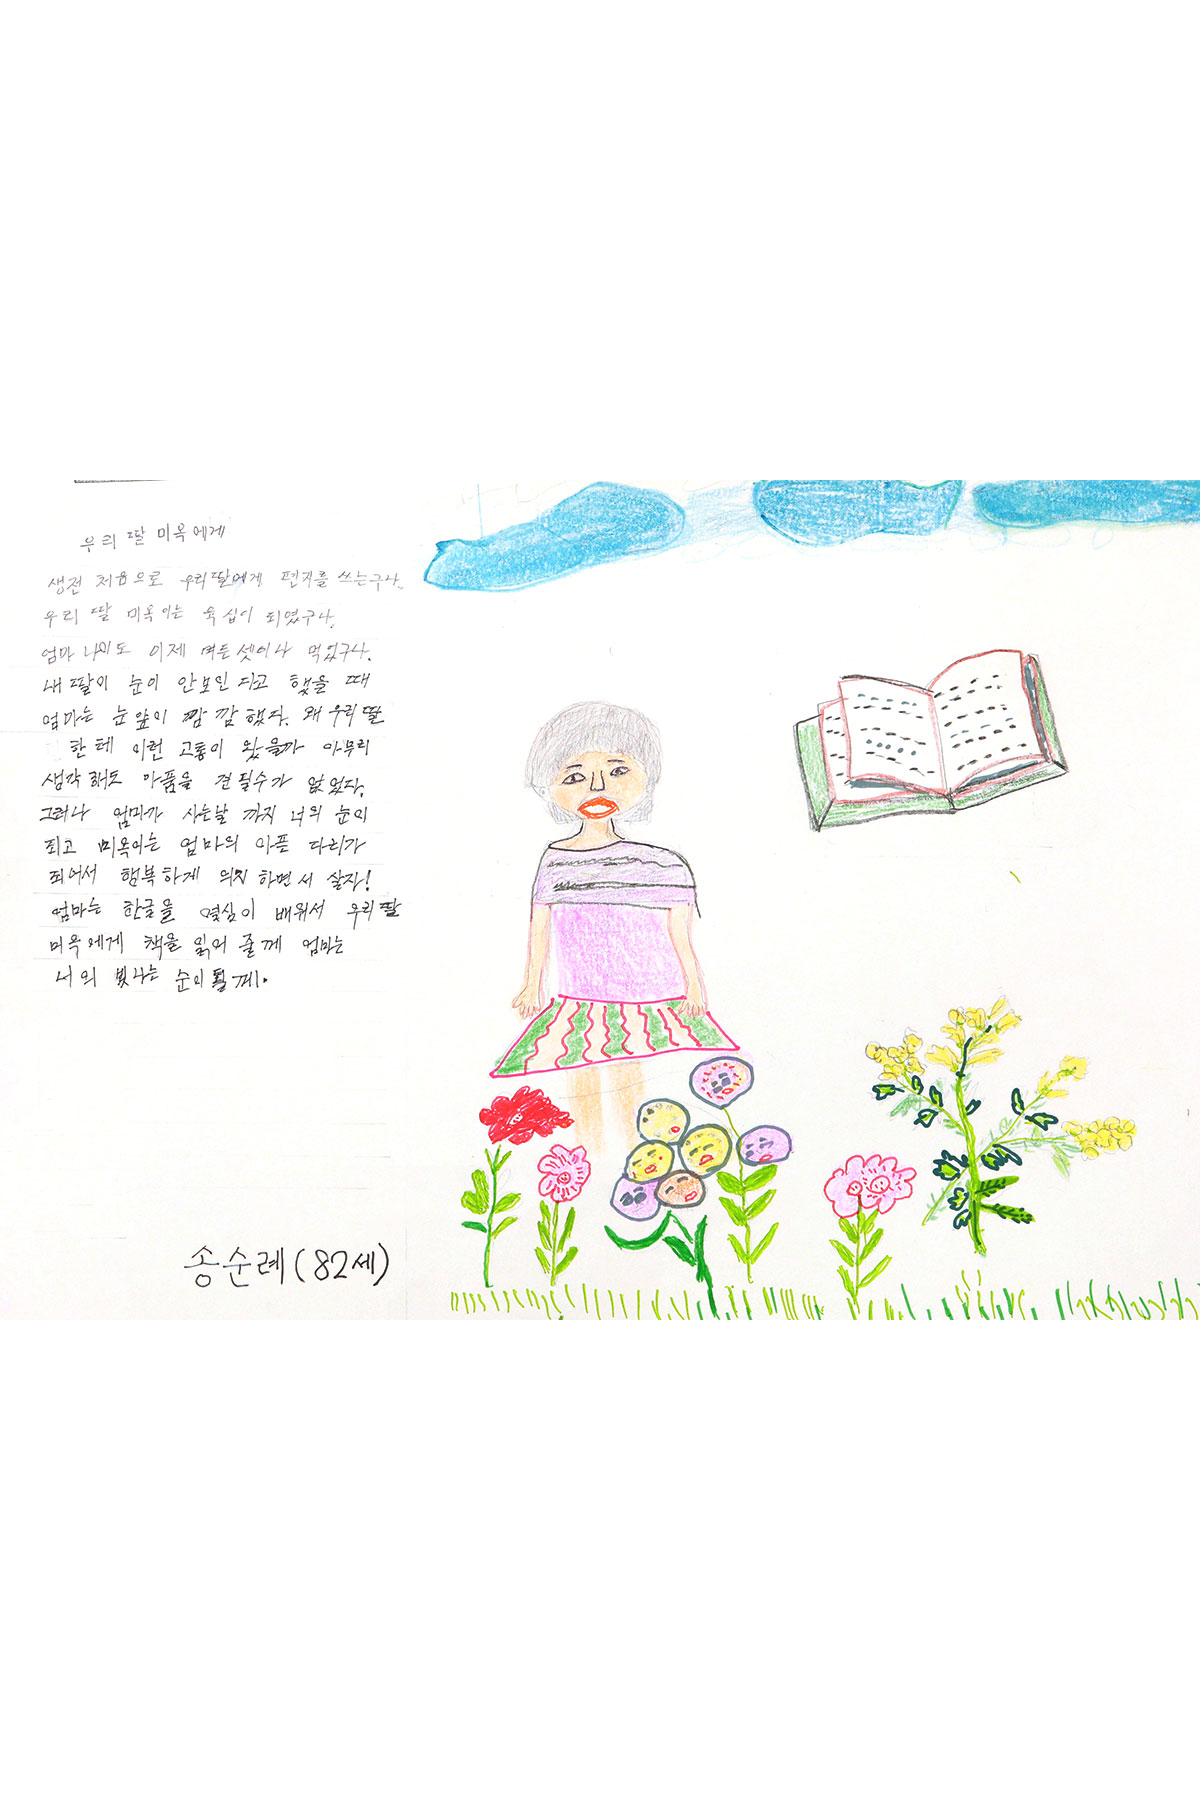 우리 딸 미옥에게
생전 처음으로 우리딸에게 편지를 쓰는구나.
우리 딸 미옥이는 육십이 되였구나.
엄마 나이도 이제 여든셋이나 먹었구나.
내 딸이 눈이 안보인다고 했을 때
엄마는 눈앞이 깜깜했다. 왜 우리딸
한테 이런 고통이 왔을까 아무리
생각해도 아픔을 견딜수가 없었다.
그러나 엄마가 사는날 까지 너의 눈이
되고 미옥이는 엄마의 아픈 다리가
되어서 행복하게 의지하면서 살자!
엄마는 한글을 열심이 배워서 우리딸
미옥에게 책을 읽어 줄께 엄마는
너의 빛나는 눈이 될께.
송순례(82세)